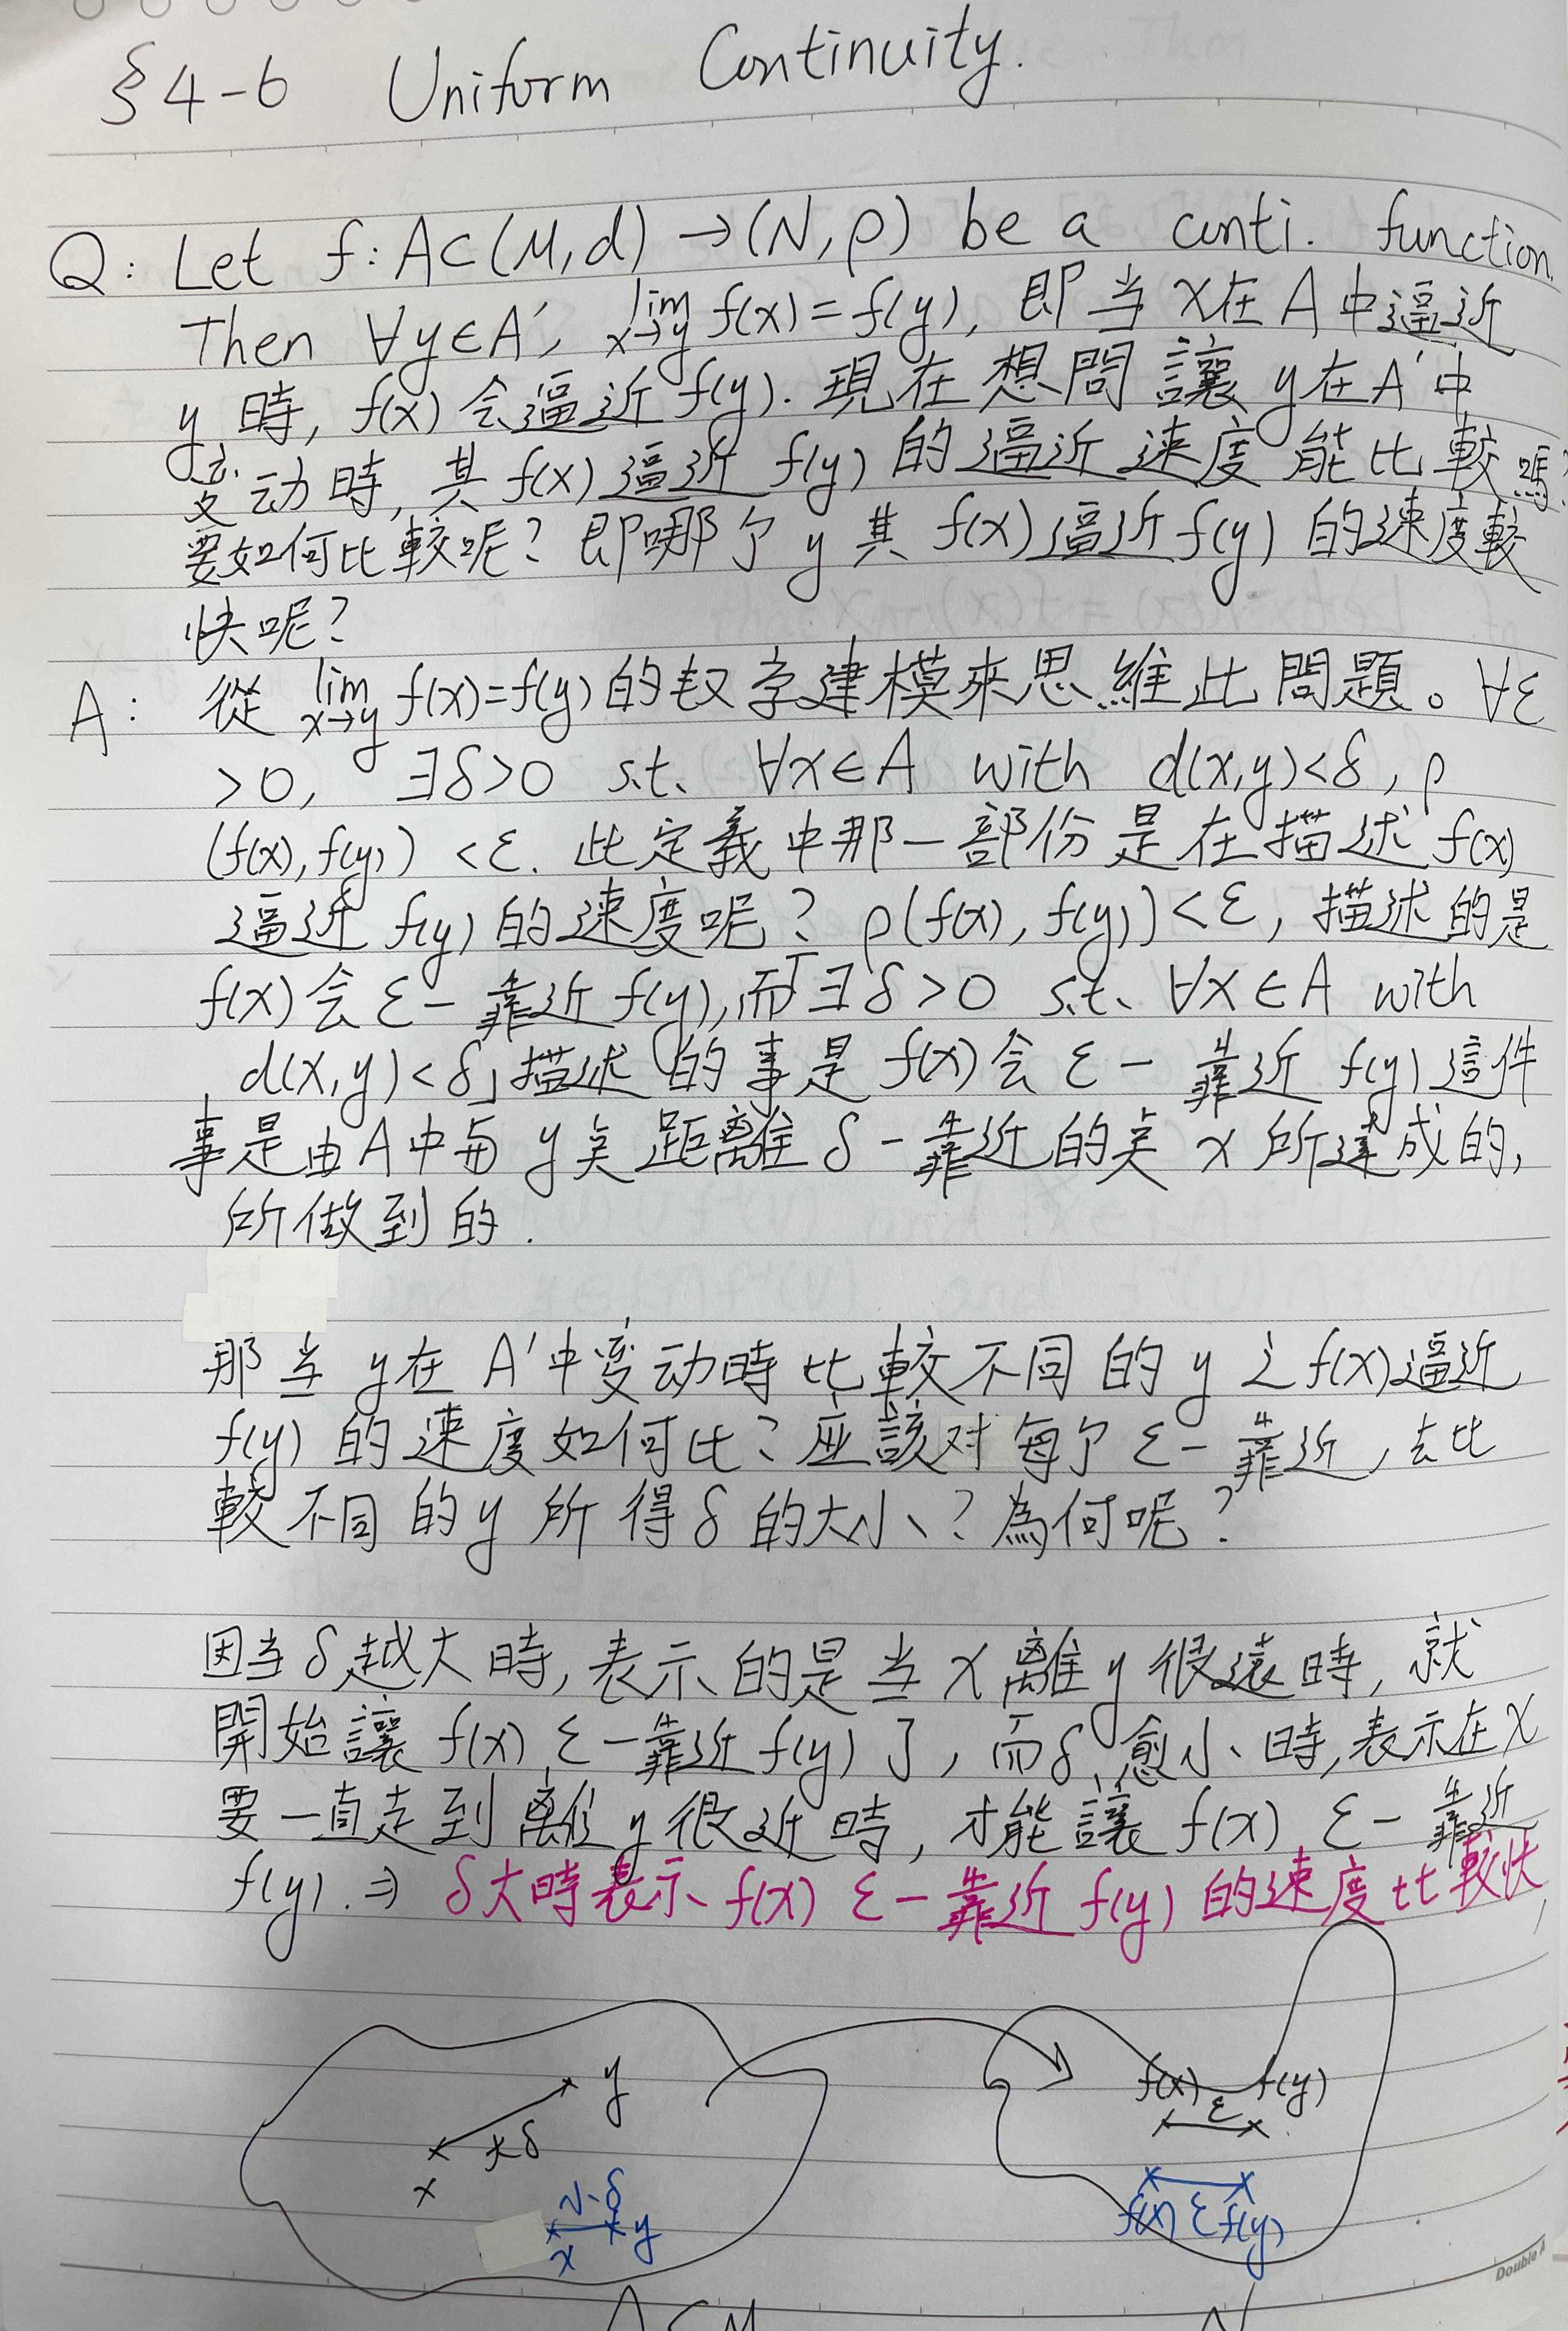 §4-6 Uniform Continuity.
Q: Let f: A⊂(M,d)→(N,ρ) be a conti. function.
Then ∀y∈A', lim x→y f(x)=f(y), 即当 x在A中逼近
y時, f(x)会逼近f(y). 現在想問讓y在A'中
变动時, 其f(x)逼近f(y)的逼近速度能比較嗎?
要如何比較呢? 即哪个y其f(x)逼近f(y)的速度較
快呢?
A: 從 lim x→y f(x)=f(y)的数学建模來思維此問題。∀ε
>0, ∃δ>0 s.t. ∀x∈A with d(x,y)<δ, ρ
(f(x),f(y))<ε. 此定義中那一部份是在描述f(x)
逼近f(y)的速度呢? ρ(f(x),f(y))<ε, 描述的是
f(x)会ε-靠近f(y),而「∃δ>0 s.t. ∀x∈A with
d(x,y)<δ」描述的事是f(x)会ε-靠近f(y)這件
事是由A中与y矣距離δ-靠近的矣x所達成的,
所做到的.
那当y在A'中变动時比較不同的y之f(x)逼近
f(y)的速度如何比? 应該对每个ε-靠近,去比
較不同的y所得δ的大小? 為何呢?
因当δ越大時,表示的是当x離y很遠時,就
開始讓f(x)ε-靠近f(y)了,而δ愈小時,表示在x
要一直走到離y很近時,才能讓f(x)ε-靠近
f(y).⇒ δ大時表示f(x)ε-靠近f(y)的速度比較快
y
f(x) f(y)
ε
大δ
x
小δ
x y
f(x) ε f(y)
A⊂M N
Double A